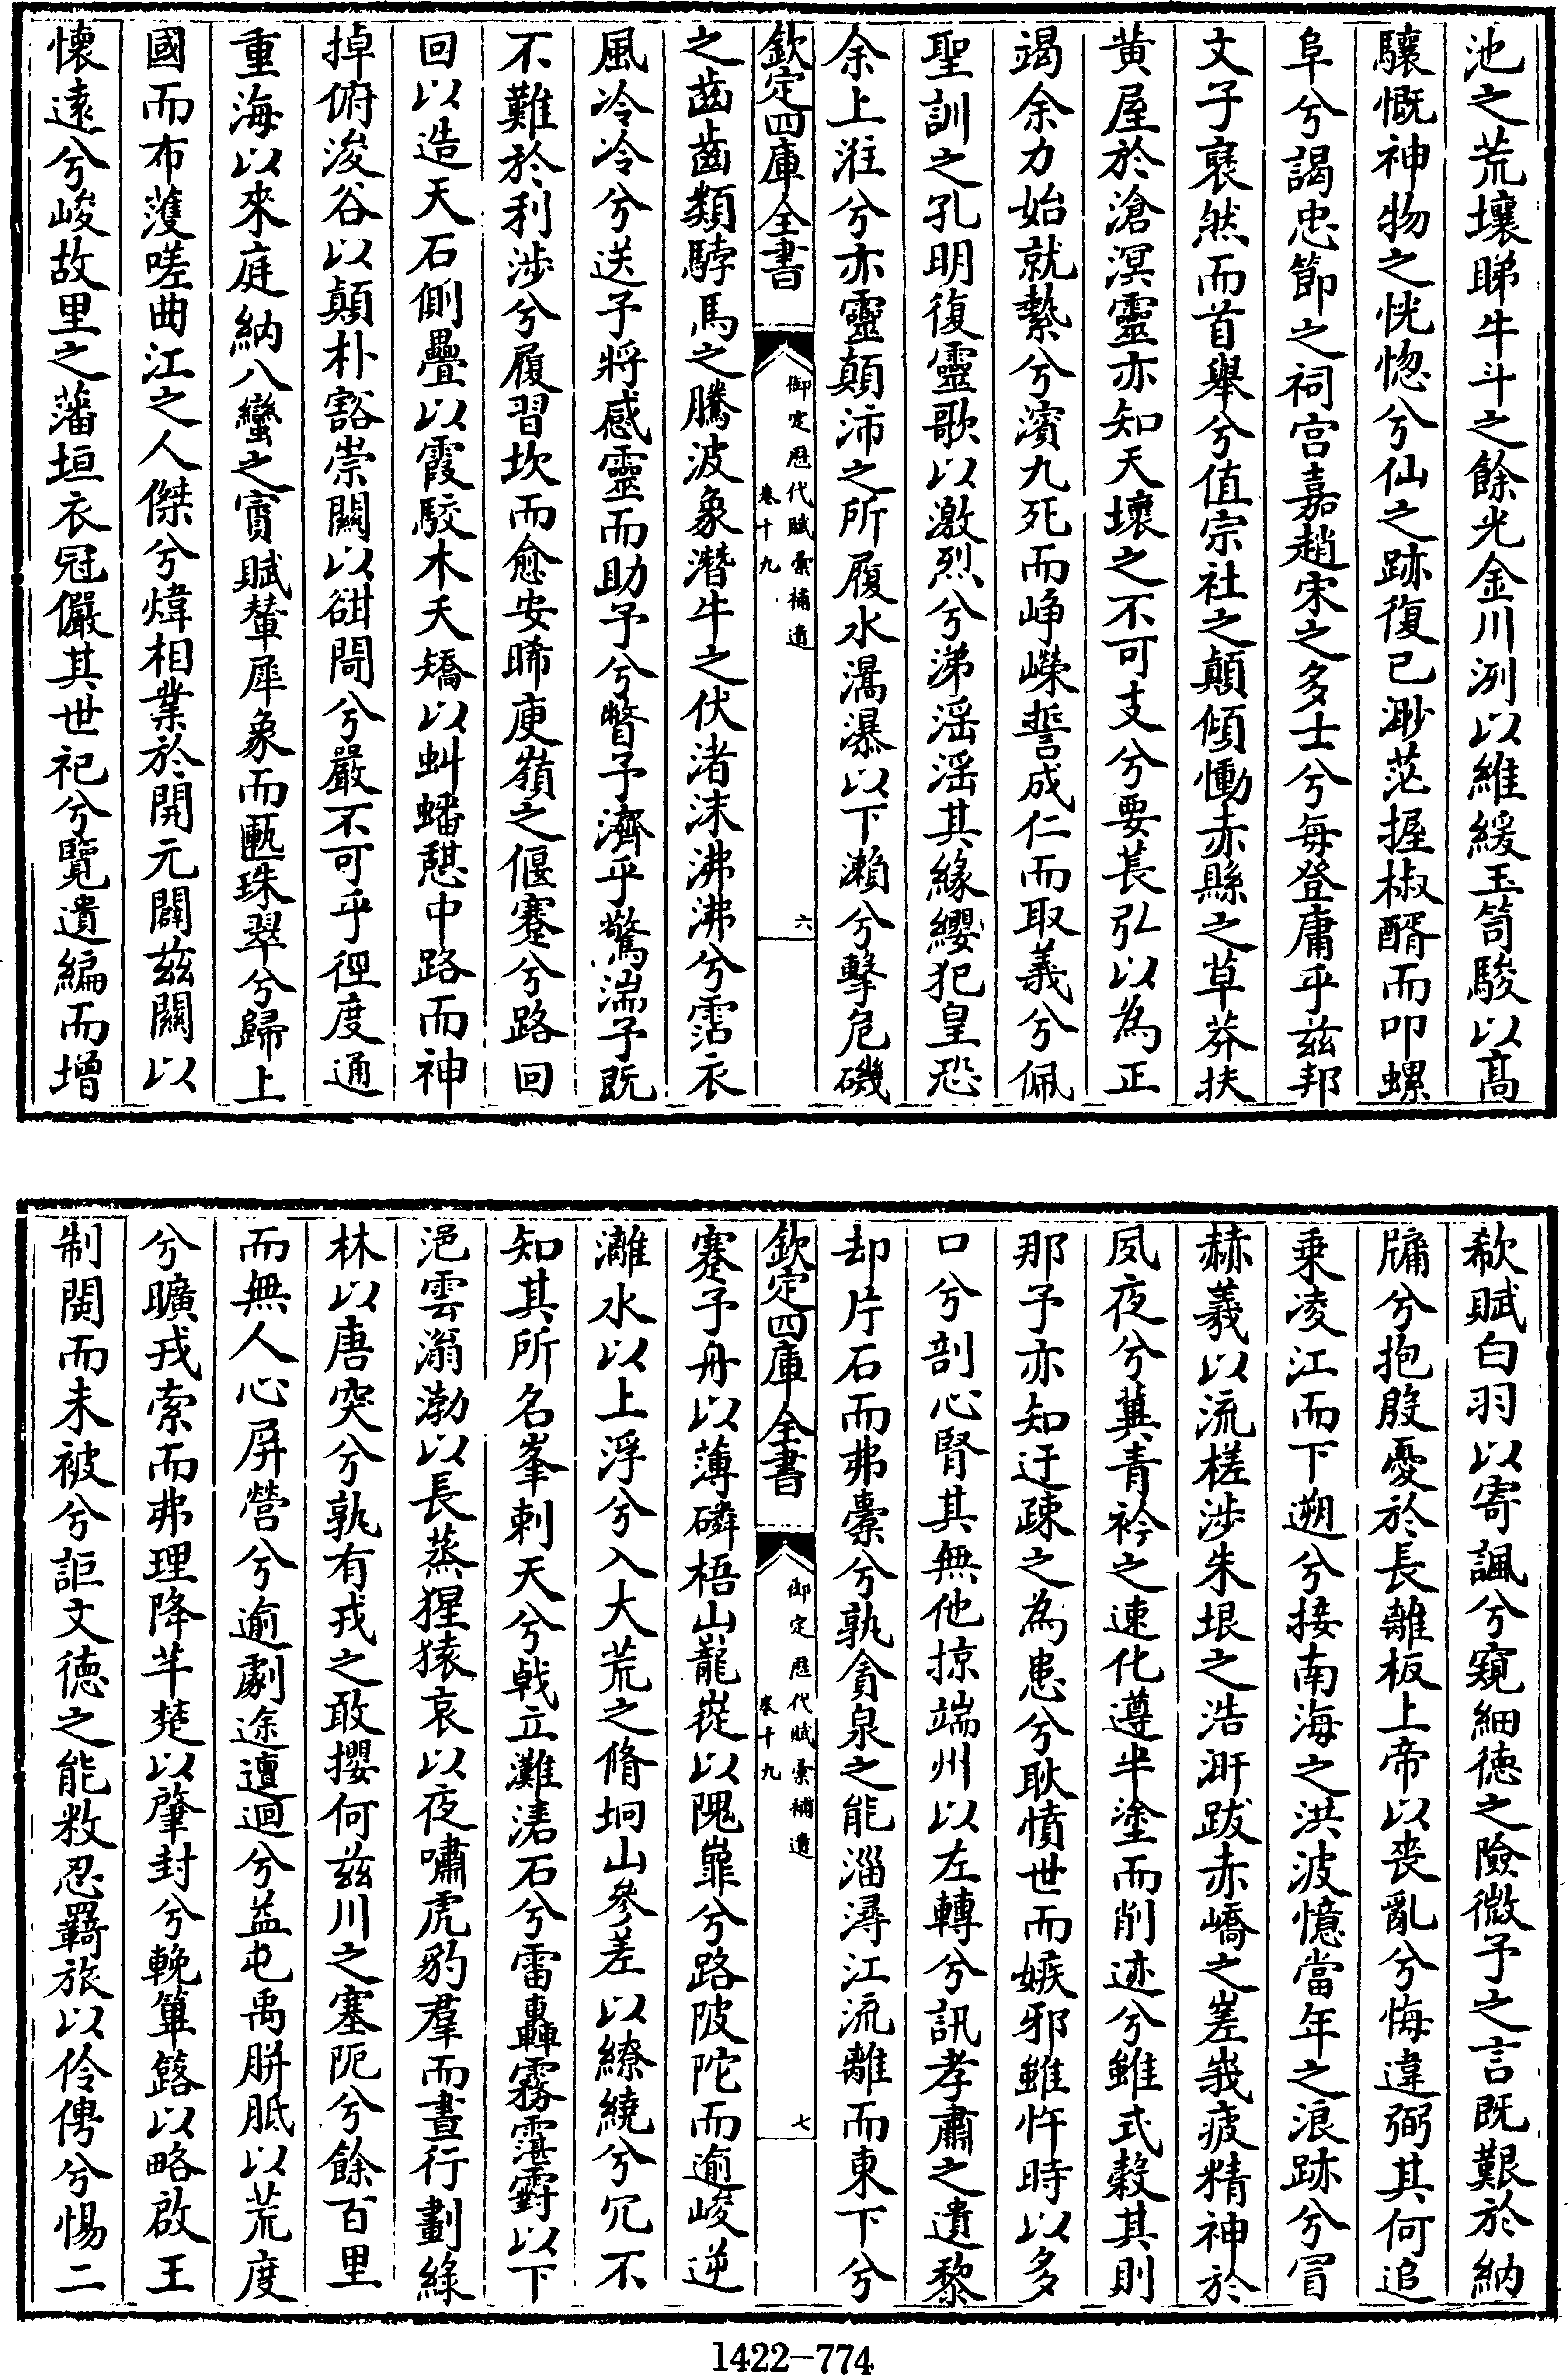 池之荒壤睇牛斗之餘光金川冽以維緩玉笥駿以髙
驤慨神物之恍惚兮仙之跡復已渺茫握椒醑而叩螺
阜兮謁忠節之祠宫嘉趙宋之多士兮毎登庸乎兹邦
文子裒然而首舉兮值宗社之顛傾慟赤縣之草莽扶
黄屋於滄溟靈亦知天壤之不可支兮要萇弘以為正
竭余力始就縶兮濱九死而崢嶸誓成仁而取義兮佩
聖訓之孔明復靈歌以激烈兮涕滛滛其緣纓犯皇恐
余上漇兮亦靈顛沛之所履水濿瀑以下瀨兮擊危磯
欽定四庫全書
御定歴代賦彚補遺
卷十九
六
之齒齒類騂馬之騰波象潛牛之伏渚沫沸沸兮霑衣
風冷冷兮送予將感靈而助予兮瞥予濟乎驚湍予既
不難於利涉兮履習坎而愈安晞庾嶺之偃蹇兮路回
回以造天石側疊以霞駮木夭矯以虯蟠憇中路而神
掉俯浚谷以顛朴豁崇關以䜪閜兮嚴不可乎徑度通
重海以來庭納八蠻之賨賦輦犀象而匭珠翠兮歸上
國而布濩嗟曲江之人傑兮煒相業於開元闢兹關以
懐逺兮峻故里之藩垣衣冠儼其世祀兮覽遺編而增
欷賦白羽以寄諷兮窺細徳之險微予之言既艱於納
牖兮抱殷憂於長離板上帝以喪亂兮悔違弼其何追
乗凌江而下遡兮接南海之洪波憶當年之浪跡兮冒
赫羲以流槎涉朱垠之浩汧跋赤嶠之嵳峩疲精神於
夙夜兮冀青衿之速化遵半塗而削迹兮雖式榖其則
那予亦知迂疎之為患兮耿憤世而嫉邪雖忤時以多
口兮剖心腎其無他掠端州以左轉兮訊孝肅之遺黎
却片石而弗槖兮孰貪泉之能淄潯江流離而東下兮
欽定四庫全書
御定歴代賦彚補遺
卷十九
七
蹇予舟以薄磷梧山巃嵸以隗嶵兮路陂陀而逾峻逆
灕水以上浮兮入大荒之脩坰山參差以繚繞兮冗不
知其所名峯刺天兮戟立灘濸石兮雷轟霧霮䨴以下
浥雲滃渤以長蒸猩猿哀以夜嘯虎豹羣而晝行劃緑
林以唐突兮孰有戎之敢攖何兹川之塞阨兮餘百里
而無人心屏營兮逾劇途邅迴兮益屯禹胼胝以荒度
兮曠戎索而弗理降芊楚以肇封兮輓箄簬以略啟王
制閡而未被兮詎文徳之能敉忍羇旅以伶俜兮惕二
1422—774